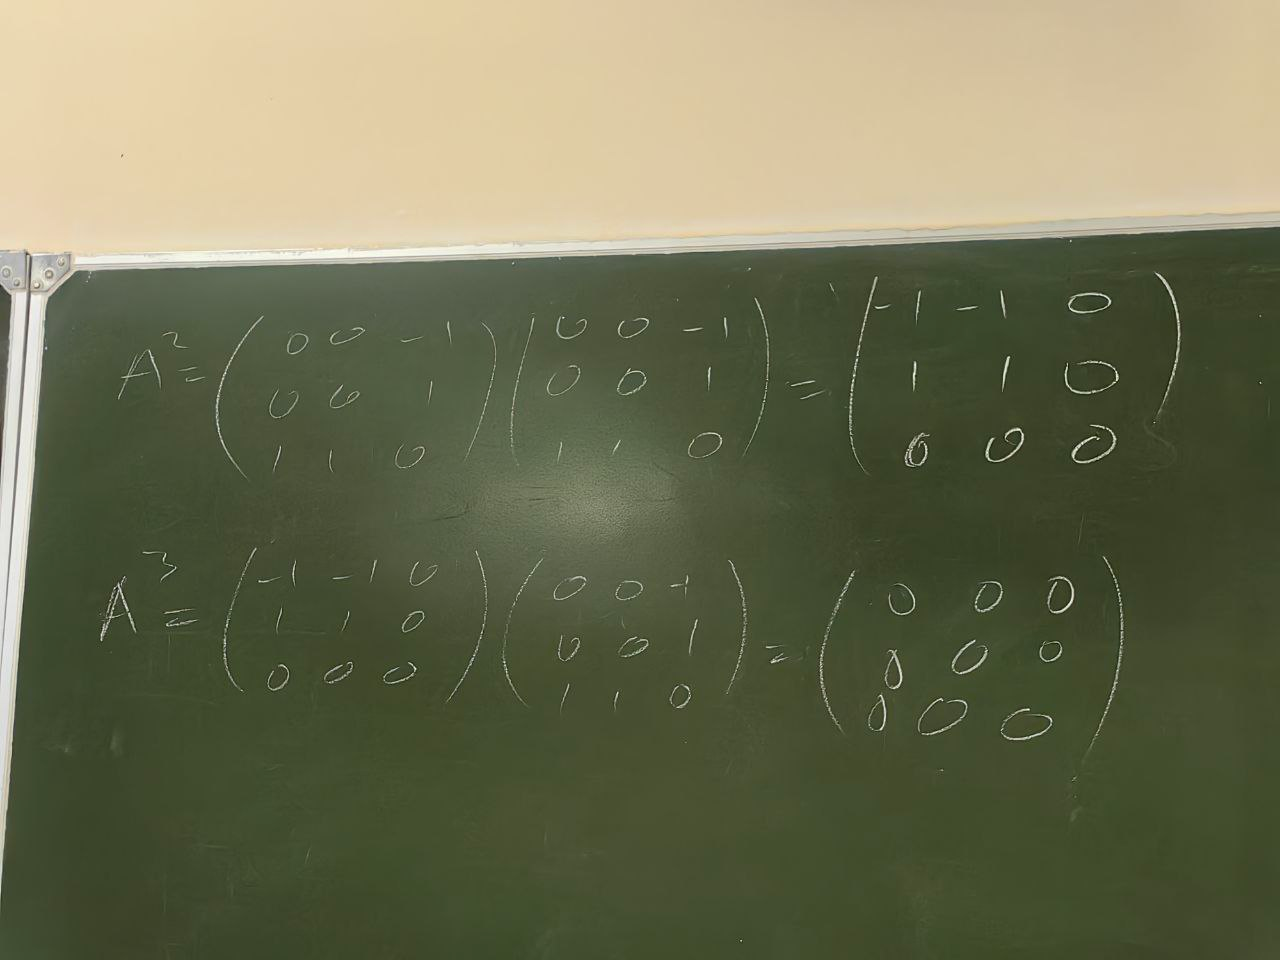 A² = ( 0 0 -1 ) ( 0 0 -1 ) = ( -1 -1 0 )
( 0 0 1 ) ( 0 0 1 ) ( 1 1 0 )
( 1 1 0 ) ( 1 1 0 ) ( 0 0 0 )
A³ = ( -1 -1 0 ) ( 0 0 -1 ) = ( 0 0 0 )
( 1 1 0 ) ( 0 0 1 ) ( 0 0 0 )
( 0 0 0 ) ( 1 1 0 ) ( 0 0 0 )